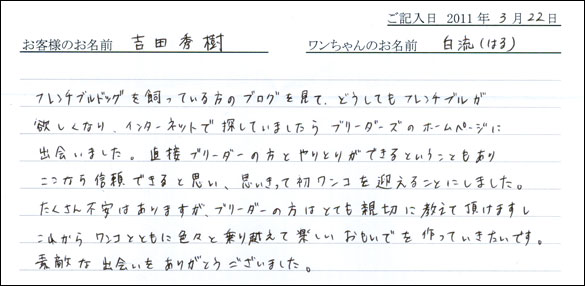 ご記入日 2011年 3月 22日
お客様のお名前 吉田秀樹 ワンちゃんのお名前 白流(はる)
フレンチブルドッグを飼っている方のブログを見て、どうしてもフレンチブルが
欲しくなり、インターネットで探していましたらブリーダーズのホームページに
出会いました。直接ブリーダーの方とやりとりができるということもあり
ここなら信頼できると思い、思いきって初ワンコを迎えることにしました。
たくさん不安はありますが、ブリーダーの方はとても親切に教えて頂けますし
これからワンコとともに色々と乗り越えて楽しいおもいでを作っていきたいです。
素敵な出会いをありがとうございました。